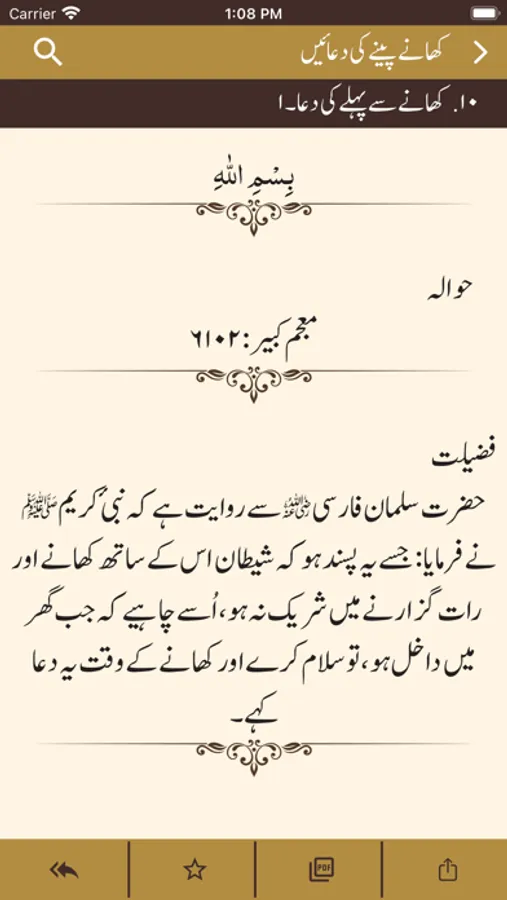 Carrier 1:08 PM
کھانے پینے کی دعائیں
۱۰. کھانے سے پہلے کی دعا۔۱
بِسْمِ اللّٰهِ
حوالہ
معجم کبیر: ۶۱۰۲
فضیلت
حضرت سلمان فارسی رضی اللہ عنہ سے روایت ہے کہ نبی کریم ﷺ
نے فرمایا: جسے یہ پسند ہو کہ شیطان اس کے ساتھ کھانے اور
رات گزارنے میں شریک نہ ہو، اُسے چاہیے کہ جب گھر
میں داخل ہو، تو سلام کرے اور کھانے کے وقت یہ دعا
کہے۔
PDF